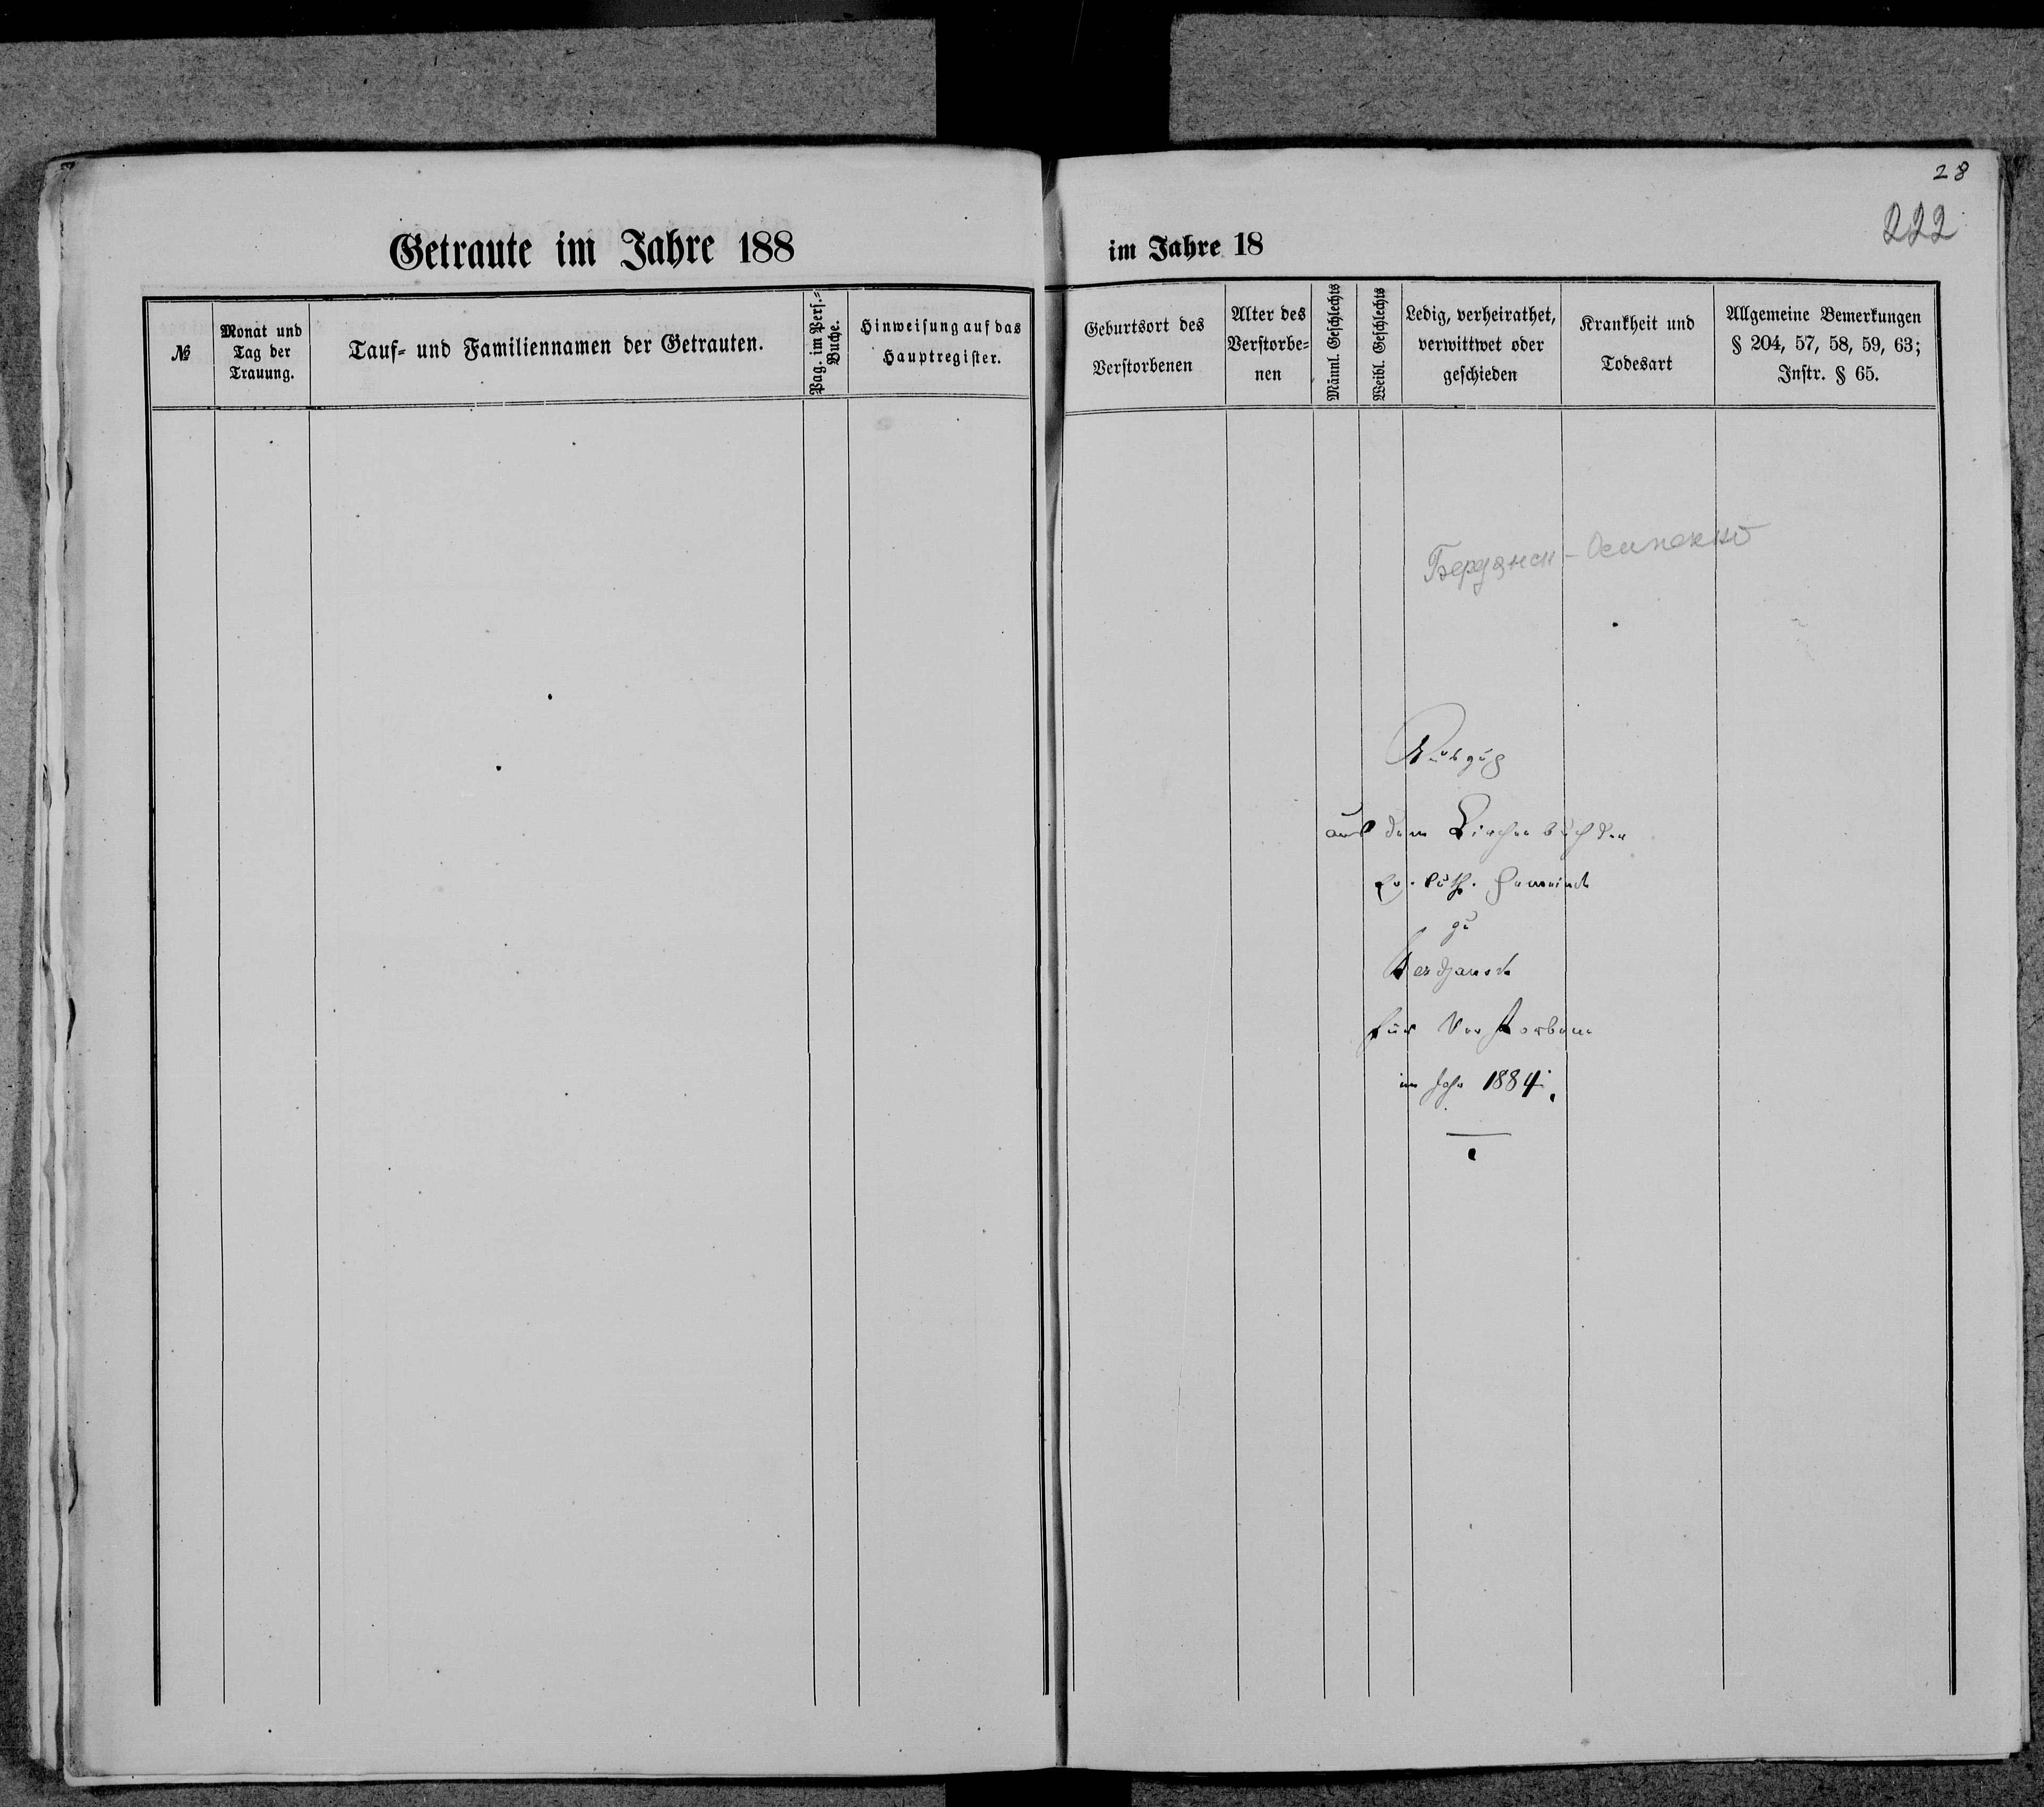 Getraute im Jahre 188
№
Monat und
Tag der
Trauung.
Tauf- und Familiennamen der Getrauten.
Pag. im Pers.-
Buche.
Hinweisung auf das
Hauptregister.
28
222
im Jahre 18
Geburtsort des
Verstorbenen
Alter des
Verstorbe-
nen
Männl. Geschlechts
Weibl. Geschlechts
Ledig, verheirathet,
verwittwet oder
geschieden
Krankheit und
Todesart
Allgemeine Bemerkungen
§ 204, 57, 58, 59, 63;
Instr. § 65.
Бердянск - Осипенко
Auszug
aus dem Kirchenbuch der
Ev. Luth. Gemeinde
zu
Berdjansk
für Verstorbene
im Jahr 1884.